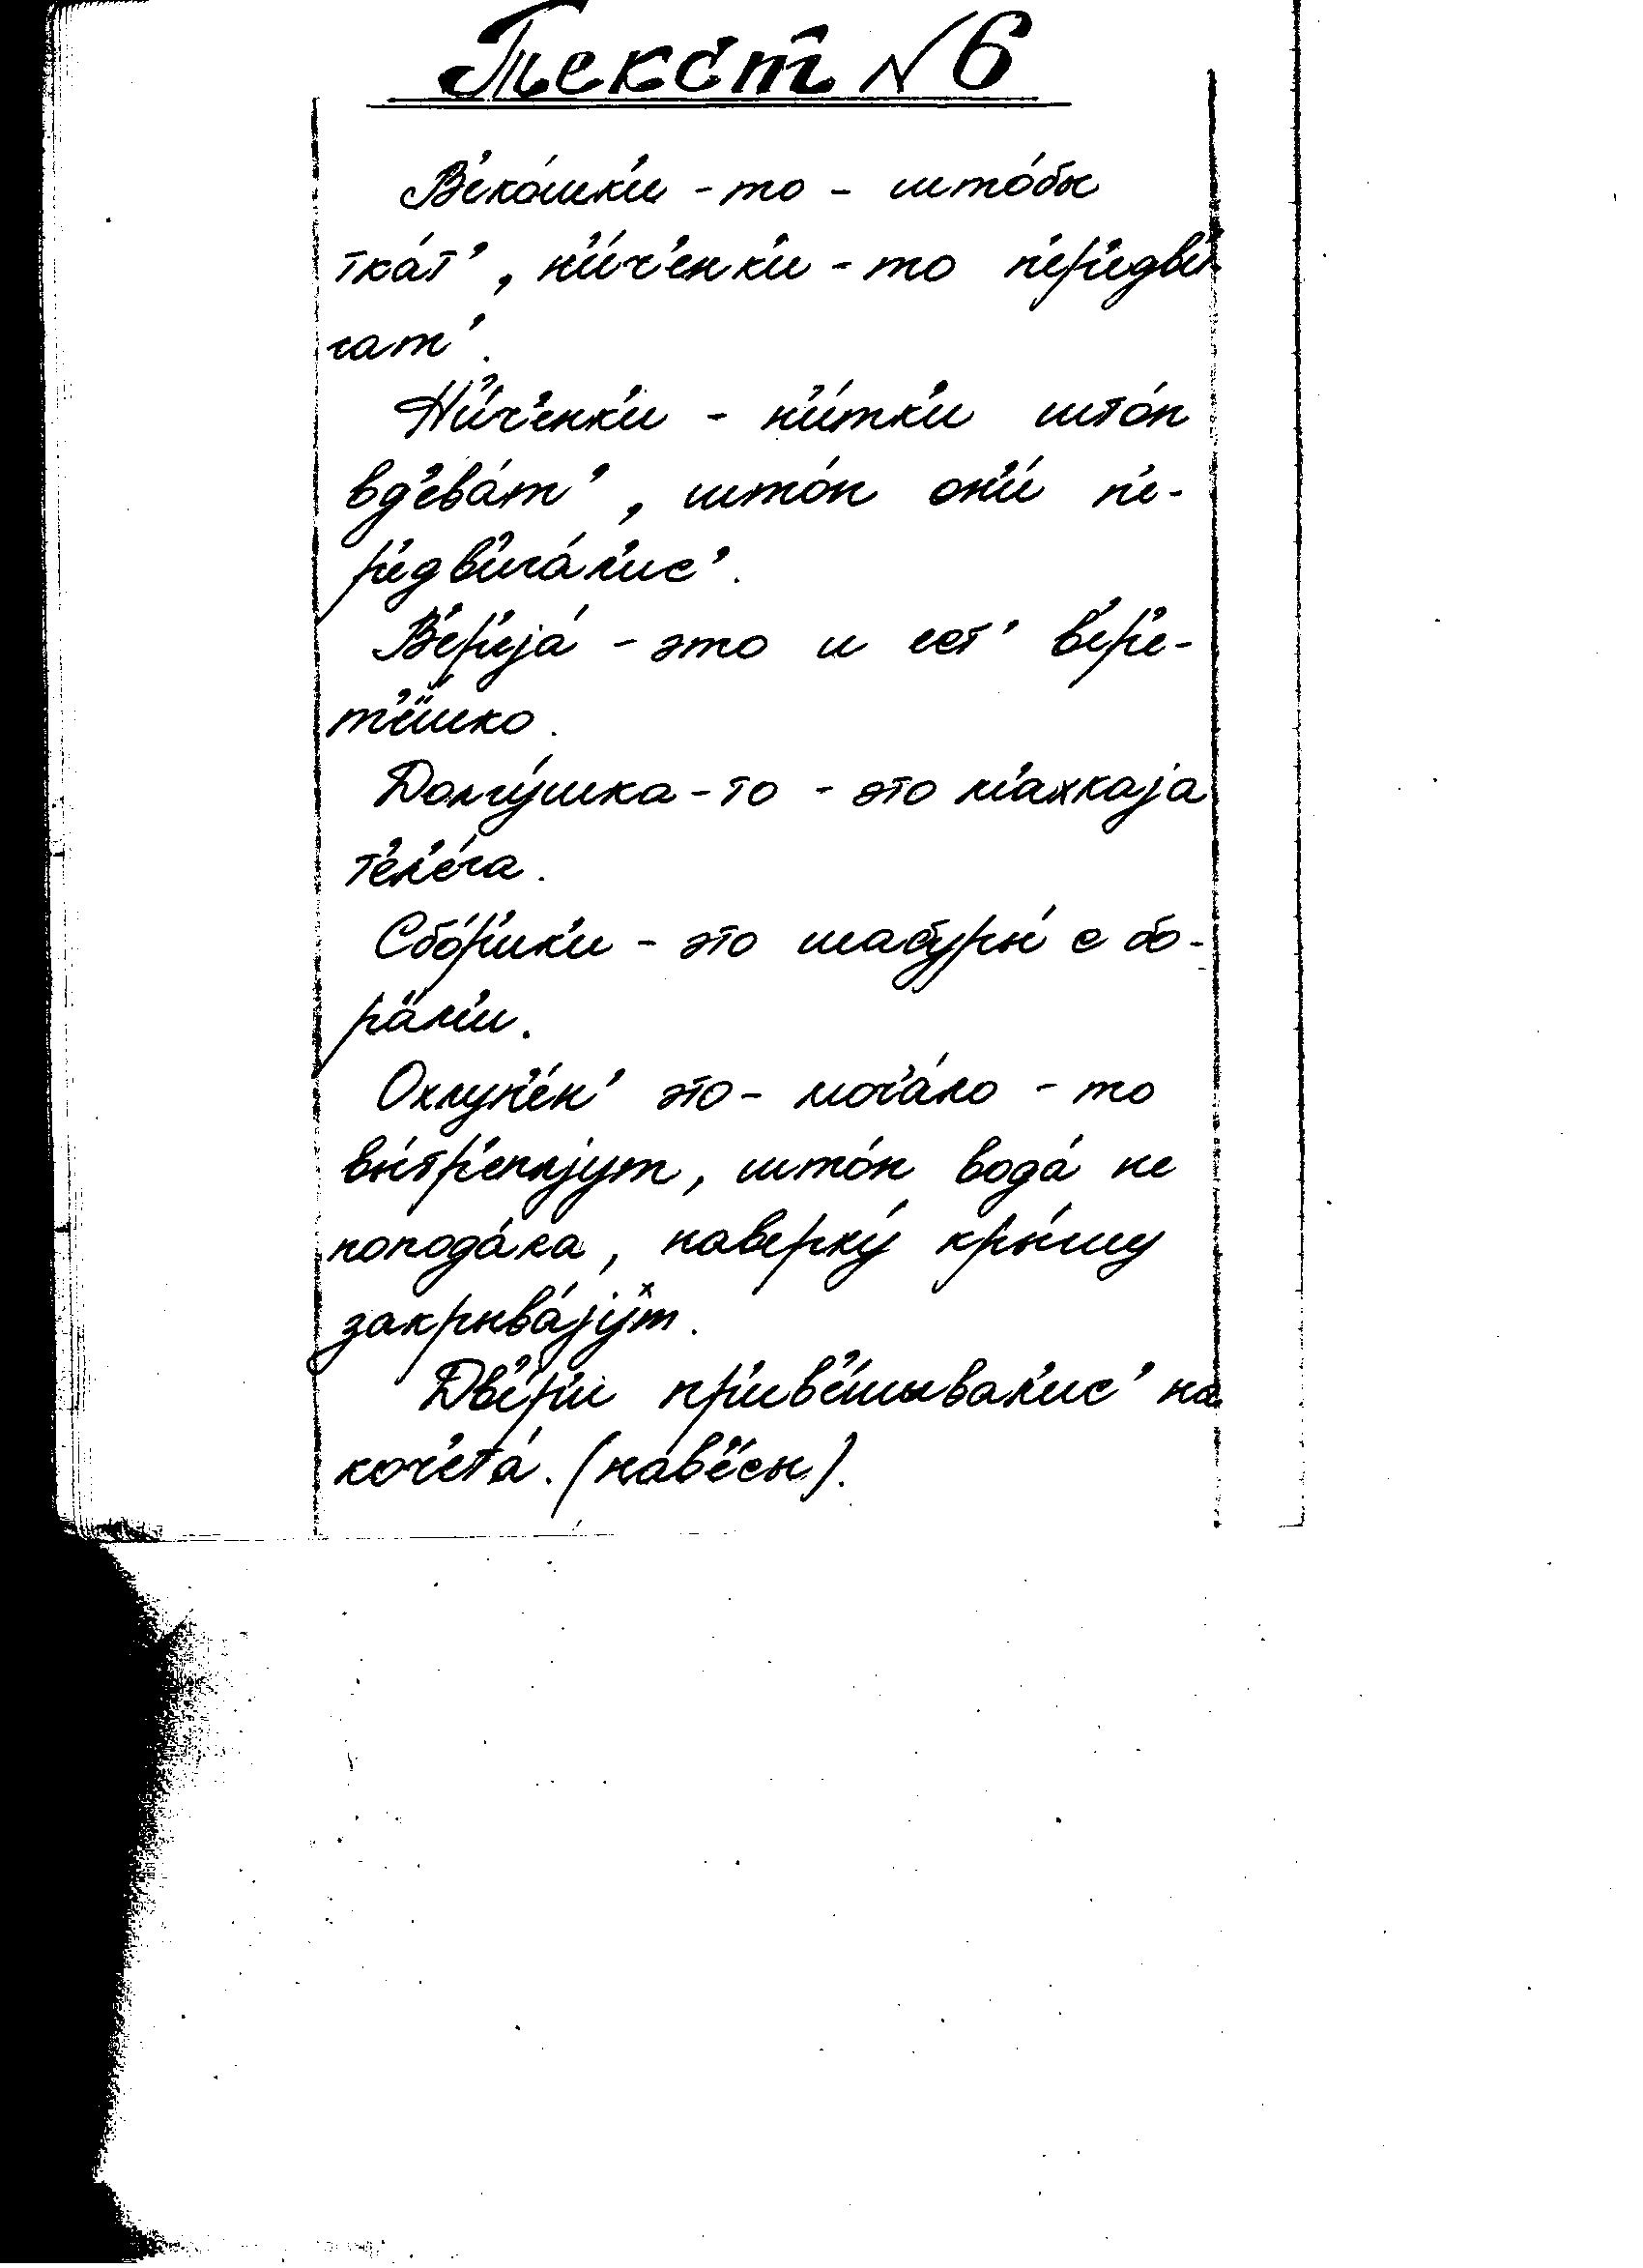 Текст №6
В'еко́шк'и - то - што́бы
тка́т', н'и́ч'енк'и - то п'ер'ядв'и
гат'.
Н'и́ч'енк'и - н'и́тк'и што́п
вд'ева́т', што́п он'и́ п'е-
р'едв'ига́л'ис'.
В'ер'еjа́ - это и ест' в'ер'е-
т'ёшко.
Долгу́шка-то - это м'ахкаjа
т'ел'е́га.
Сбо́р'ик'и - это шабуры́ с бо-
ра́м'и.
Охлуп'е́н' это - моч'а́ло - то
вы́тр'епл'jут, што́п вода́ не
попода́ла, наверху́ кры́шу
закрыва́jут.
Дв'е́р'и пр'ив'е́шывал'ис' на
коч'ета́. (нав'е́сы).